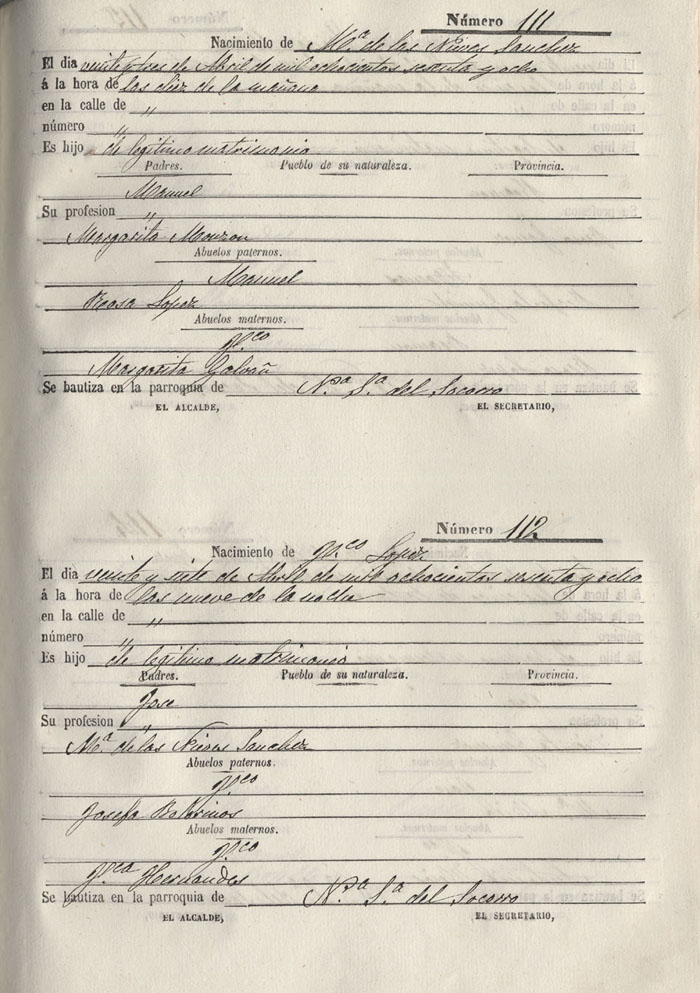 Número 111
Nacimiento de Mª de las Nieves Sanchez
El dia veinte y tres de Abril de mil ochocientos sesenta y ocho
á la hora de las diez de la mañana
en la calle de "
número "
Es hijo de legitimo matrimonio
Padres. Pueblo de su naturaleza. Provincia.
Manuel
Su profesion "
Margarita Monzon
Abuelos paternos.
Manuel
Rosa Lopez
Abuelos maternos.
Frco
Margarita Galvañ
Se bautiza en la parroquia de Nra Sa del Socorro
EL ALCALDE, EL SECRETARIO,
Número 112
Nacimiento de Frco Lopez
El dia veinte y siete de Abril de mil ochocientos sesenta y ocho
á la hora de las nueve de la noche
en la calle de "
número "
Es hijo de legitimo matrimonio
Padres. Pueblo de su naturaleza. Provincia.
Jose
Su profesion "
Mª de las Nieves Sanchez
Abuelos paternos.
Frco
Josefa
Abuelos maternos.
Frco
Frca Hernandes
Se bautiza en la parroquia de Nra Sa del Socorro
EL ALCALDE, EL SECRETARIO,